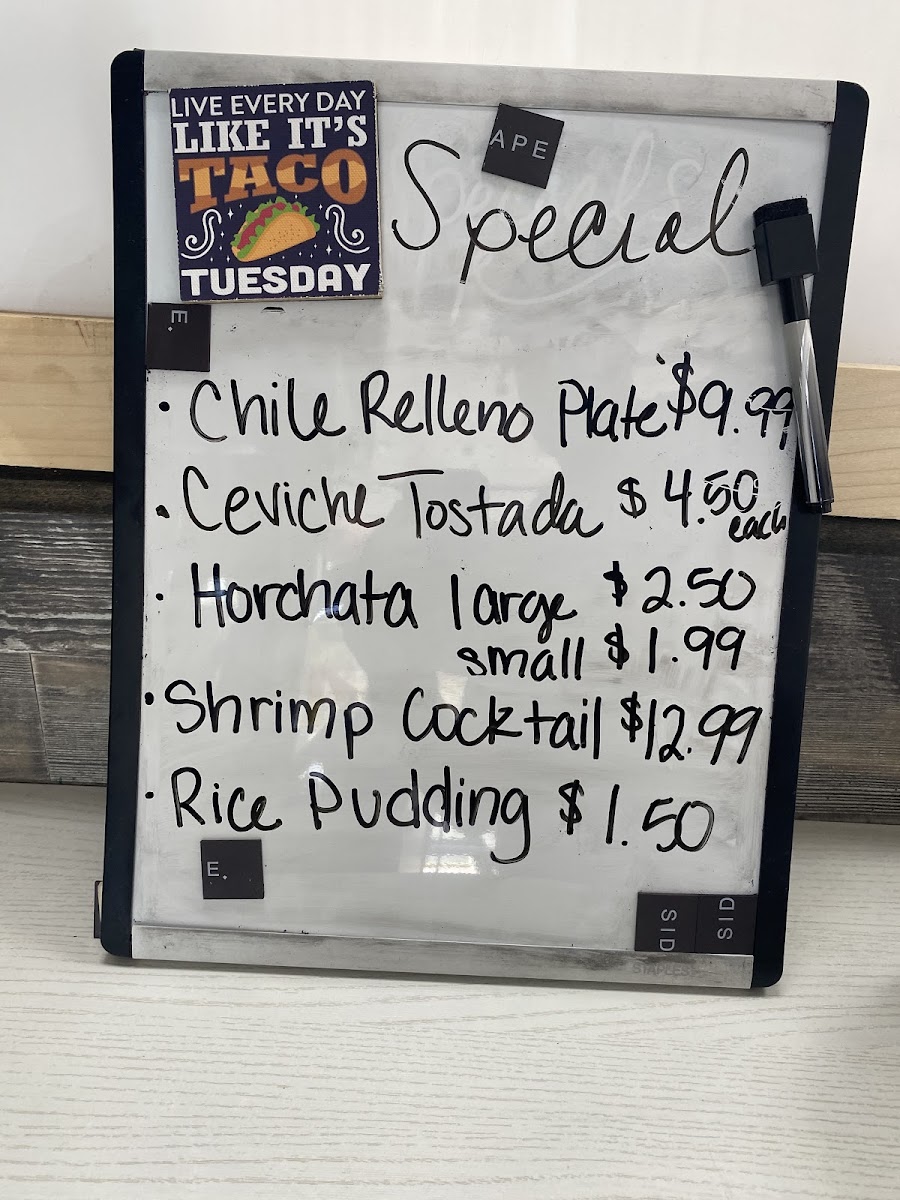 LIVE EVERY DAY
LIKE IT'S
TACO
TUESDAY
APE
Special
E.
• Chile Relleno Plate $9.99
• Ceviche Tostada $4.50
each
• Horchata large $2.50
small $1.99
• Shrimp Cocktail $12.99
• Rice Pudding $1.50
E.
SID
SID
STAPLES